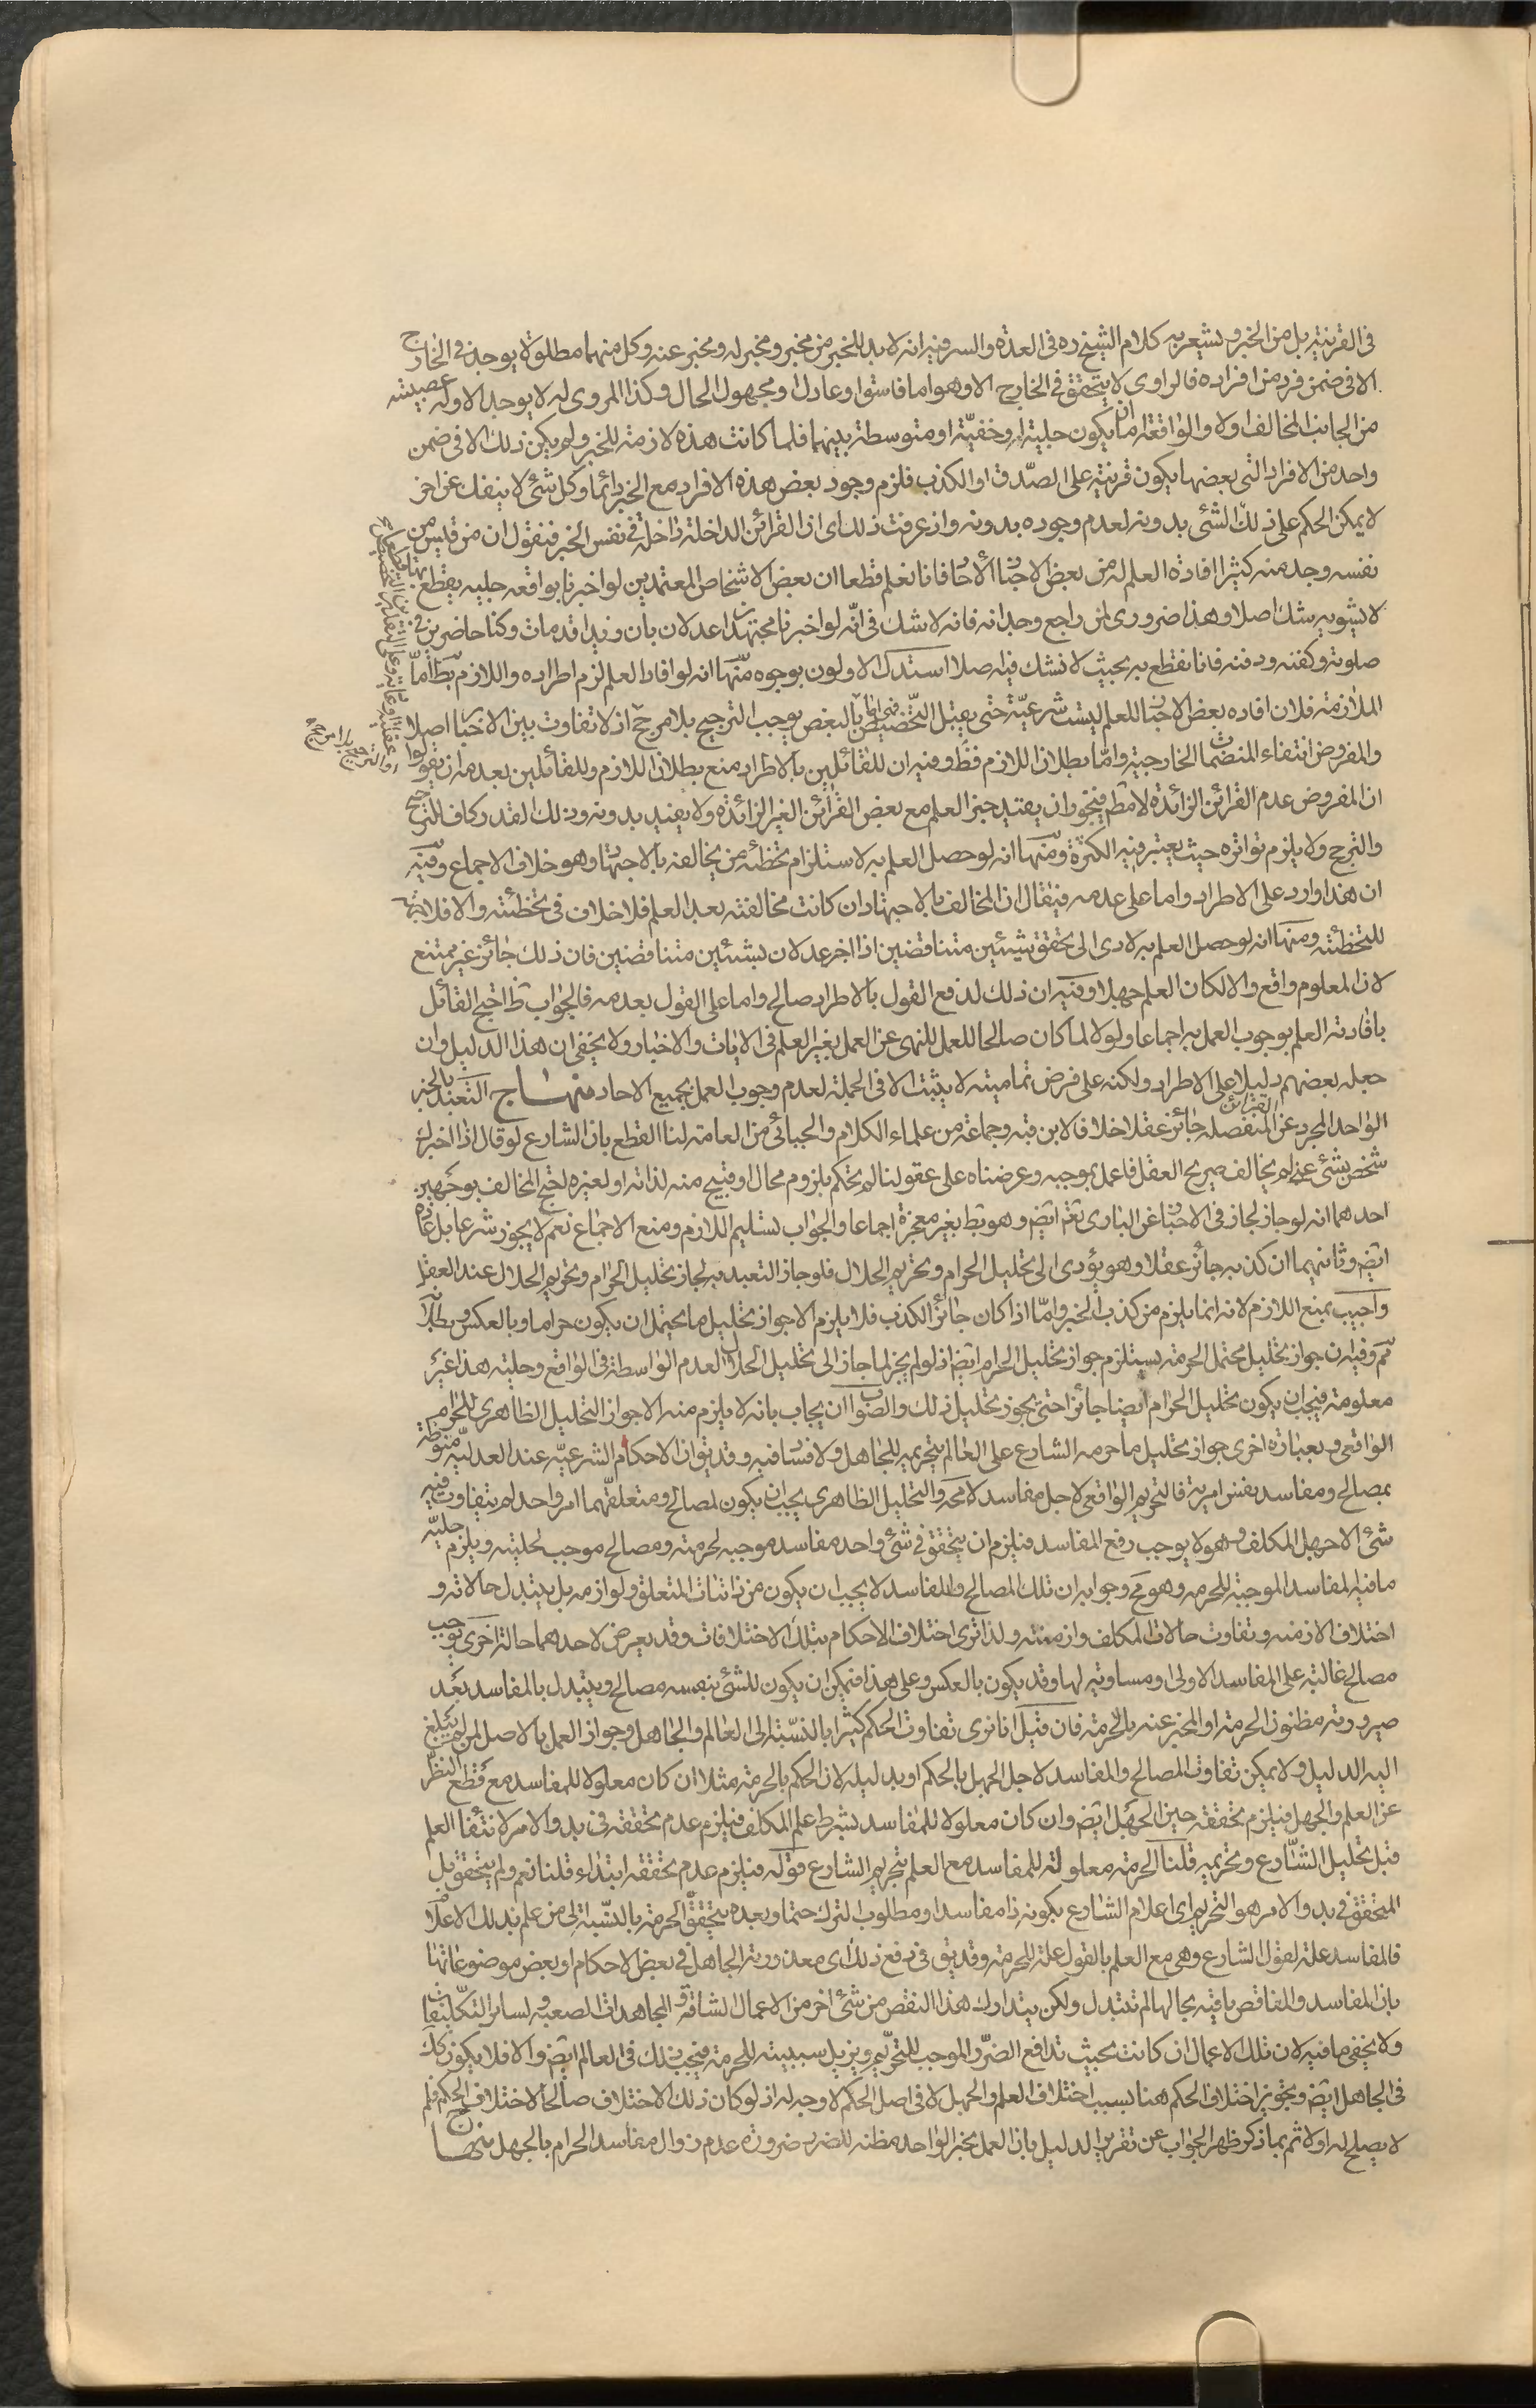 فى القرينة بل من الخبر ويشعر به كلام الشيخ ره فى العدة والسر فيه انه لا بد للخبر من مخبر ومخبر له ومخبر عنه وكل منهما مطلوة لا يوجد فى الخارج
الا فى ضمن فرد من افراده فالراوى لا يتحقق فى الخارج الا وهو اما فاسق او عادل او مجهول الحال وكذا المروى له لا يوجد الا وله عصبيته
من الجانب المخالف او لا والواقعة اما ان يكون جلية او خفيّة او متوسطة بينهما فلما كانت هذه لازمة للخبر ولم يكن ذلك الا فى ضمن
واحد من الافراد التى بعضها يكون قرينة على الصّدق او الكذب فلزم وجود بعض هذه الافراد مع الخبر دائما وكل شئ لا ينفك عن اخر
لا يمكن الحكم على ذلك الشئ بدونه لعدم وجوده بدونه واذ عرفت ذلك اى ان القرائن الداخلة داخلة فى نفس الخبر فنقول ان من قايس من
نفسه وجد منه كثيرا افادة العلم له من بعض الاخبار الآحاد فانا نعلم قطعا ان بعض الاشخاص المعتمدين لو اخبرنا بواقعه جليه يقطع بها
لا يشوبه شك اصلا وهذا ضرورى لمن راجع وجدانه فانه لا شك فى انّه لو اخبرنا مجتهدان عدلان بان زيدا قد مات وكنا حاضرين فى
صلوته وكفنه ودفنه فانا نقطع به بحيث لا نشك فيه اصلا استدل الاولون بوجوه منها انه لو افاد العلم لزم اطراده واللازم بط امّا
الملازمة فلان افاده بعض الاخبار للعلم ليست شرعيّة حتى يقبل التخصيص بالبعض يوجب الترجيح بلا مرجح اذ لا تفاوت بين الاخبار اصلا
والمفروض انتفاء المنضمات الخارجية وامّا بطلان اللازم فظ وفيه ان للقائلين بالاطراد منع بطلان اللازم وللقائلين بعدمه ان يقولوا
ان المفروض عدم القرائن الزائدة لا مطم فيجوز ان يفيد خبر العلم مع بعض القرائن الغير الزائدة ولا يفيد بدونه وذلك القدر كاف للترجيح
والترجح ولا يلزم تواتره حيث يعتبر فيه الكثرة ومنها انه لو حصل العلم به لاستلزم تخطئه من يخالفه بالاجتهاد وهو خلاف الاجماع وفيه
ان هذا وارد على الاطراد واما على عدمه فيقال ان المخالف بالاجتهاد ان كانت مخالفته بعد العلم فلا خلاف فى تخطئته والا فلا جهة
للتخطئة ومنها انه لو حصل العلم به لادى الى تحقق شيئين متناقضين اذا اخبر عدلان بشيئين متناقضين فان ذلك جائز غير ممتنع
لان المعلوم واقع والا لكان العلم جهلا وفيه ان ذلك لدفع القول بالاطراد صالح واما على القول بعدمه فالجواب ظ احتج القائل
بافادته العلم بوجوب العمل به اجماعا ولولا لما كان صالحا للعمل للنهى عن العمل بغير العلم فى الايات والاخبار ولا يخفى ان هذا الدليل وان
جعله بعضهم دليلا على الاطراد ولكنه على فرض تماميته لا يثبت الا فى الجملة لعدم وجوب العمل بجميع الاحاد منهاج التعبد بالخبر
الواحد المجرد عن القرائن المنفصله جائز عقلا خلافا لابن قبه وجماعة من علماء الكلام والجبائى من العامة لنا القطع بان الشارع لو قال اذا اخبرك
شخص بشئ عنى ولم يخالف صريح العقل فاعمل بموجبه وعرضناه على عقولنا لم يحكم بلزوم محال او قبيح منه لذاته او لغيره احتج المخالف بوجهين
احدهما انه لو جاز لجاز فى الاخبار عن البارى تعم ايضم وهو بط بغير معجزة اجماعا والجواب تسليم اللازم ومنع الاجماع نعم لا يجوز شرعا بل عادة
ايضم وثانيهما ان كذبه جائز عقلا وهو يؤدى الى تحليل الحرام وتحريم الحلال فلو جاز التعبد به لجاز تحليل الحرام وتحريم الحلال عند العقل
واجيب بمنع اللازم لانه انما يلزم من كذب الخبر وامّا اذا كان جائز الكذب فلا يلزم الا جواز تحليل ما يحتمل ان يكون حراما وبالعكس وبطلانه
ثم وفيه ان جواز تحليل محتمل الحرمة يستلزم جواز تحليل الحرام ايضم اذ لو لم يجز لما جاز الى تحليل الحلال لعدم الواسطة فى الواقع وحليته هذا غير
معلومة فيجب ان يكون تحليل الحرام ايضا جائزا حتى يجوز تحليل ذلك والصواب ان يجاب بانه لا يلزم منه الا جواز التحليل الظاهرى للحرام
الواقعى وبعبارة اخرى جواز تحليل ما حرمه الشارع على العالم بتحريمه للجاهل ولا فساد فيه وقد يق ان الاحكام الشرعيّة عند العدليّة منوطة
بمصالح ومفاسد نفس امرية فالتحريم الواقعى لاجل مفاسد لا محة والتحليل الظاهرى يجب ان يكون لمصالح ومتعلقهما امر واحد لم يتفاوت فيه
شئ الا جهل المكلف وهو لا يوجب رفع المفاسد فيلزم ان يتحقق فى شئ واحد مفاسد موجبه لحرمته ومصالح موجب لحليته ويلزم حليّه
ما فيه المفاسد الموجبة للحرمه وهو مح وجوابه ان تلك المصالح والمفاسد لا يجب ان يكون من ذاتيات المتعلق ولوازمه بل يتبدل حالاته و
اختلاف الازمنه وتفاوت حالات المكلف وازمنته ولذا ترى اختلاف الاحكام بتلك الاختلافات وقد يعرض لاحدهما حالة اخرى توجب
مصالح غالبة على المفاسد الاولى او مساوية لها وقد يكون بالعكس وعلى هذا فيمكن ان يكون للشئ بنفسه مصالح ويتبدل بالمفاسد بعد
صيرورته مظنون الحرمة او المخبر عنه بالحرمة فان قيل انا نرى تفاوت الحكم كثيرا بالنسّبة الى العالم والجاهل وجواز العمل بالاصل لمن لم يبلغ
اليه الدليل ولا يمكن تفاوت المصالح والمفاسد لاجل الجهل بالحكم او بدليله لان الحكم بالحرمة مثلا ان كان معلولا للمفاسد مع قطع النظر
عن العلم والجهل فيلزم تحققه حين الجهل ايضم وان كان معلولا للمفاسد بشرط علم المكلف فيلزم عدم تحققه فى بدو الامر لانتفاء العلم
قبل تحليل الشّارع وتحريمه قلنا الحرمة معلولة للمفاسد مع العلم بتحريم الشارع قوله فيلزم عدم تحققه ابتداء قلنا نعم ولم يتحقق بل
المتحقق فى بدو الامر هو التحريم اى اعلام الشارع بكونه ذا مفاسد او مطلوب الترك حتما وبعده يتحقق الحرمة بالنسّبة الى من علم بذلك الاعلام
فالمفاسد علة لقول الشارع وهى مع العلم بالقول علة للحرمة وقد يق فى دفع ذلك اى معذورية الجاهل فى بعض الاحكام او بعض موضوعاتها
بان المفاسد والنقائص باقية بحالها لم تتبدل ولكن يتدارك هذا النقص من شئ اخر من الاعمال الشاقة والمجاهدات الصعبة ولسائر التكليفات
ولا يخفى ما فيه لان تلك الاعمال ان كانت بحيث تدافع الضرّ والموجب للتحرّيم ويزيل سببيته للحرمة فيجب ذلك فى العالم ايضم والا فلا يكون كك
فى الجاهل ايضم وتجويز اختلاف الحكم هنا بسبب اختلاف العلم والجهل لا فى اصل الحكم لا وجه له اذ لو كان ذلك الاختلاف صالحا لاختلاف الحكم فلم
لا يصلح له اولا ثم بما ذكر ظهر الجواب عن تقرير الدليل بان العمل بخبر الواحد مظنه للضرر ضرورة عدم زوال مفاسد الحرام بالجهل منهاج